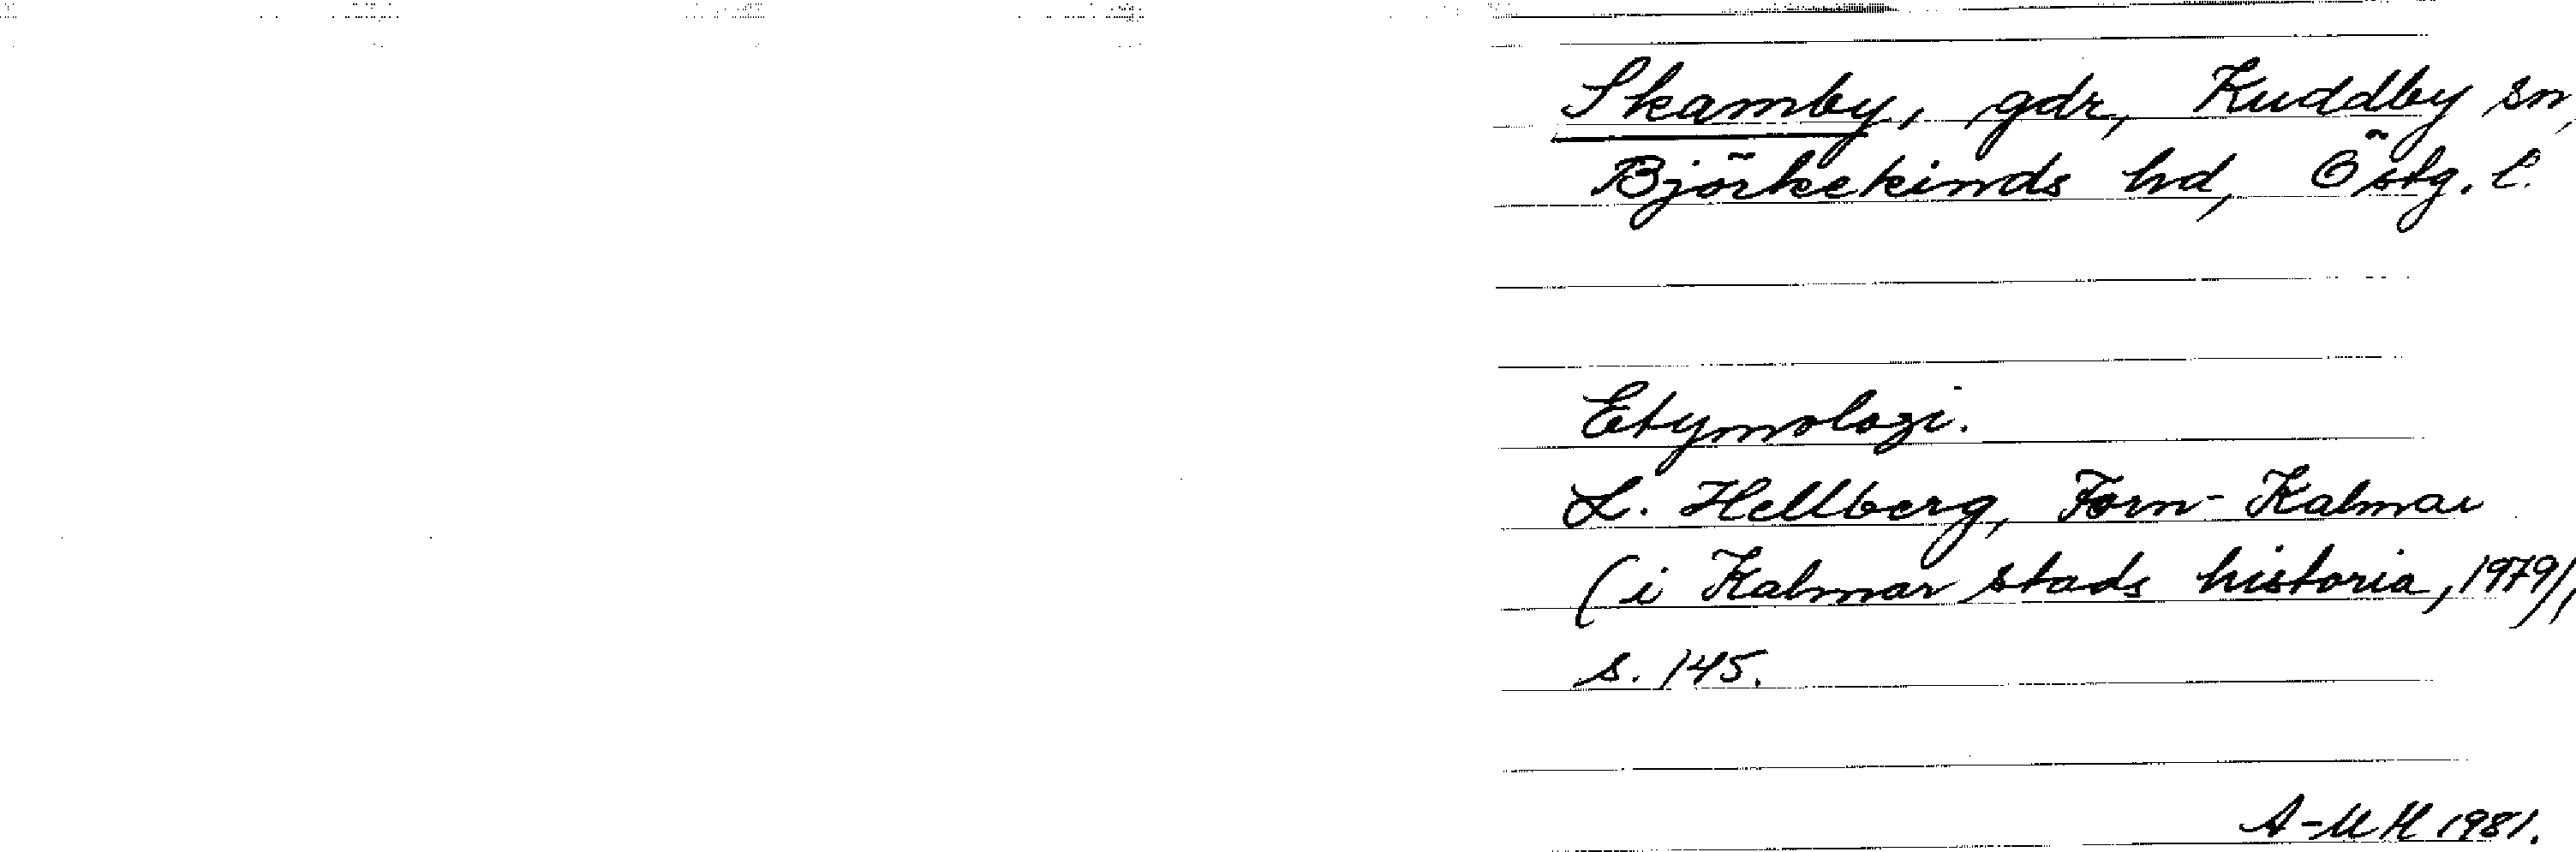 Skamby, gdr, Kuddby sn,
Björkekinds hd, Östg. l.
Etymologi.
L. Hellberg, Forn-Kalmar
(i Kalmar stads historia, 1979),
s. 145.
A-MH 1981.